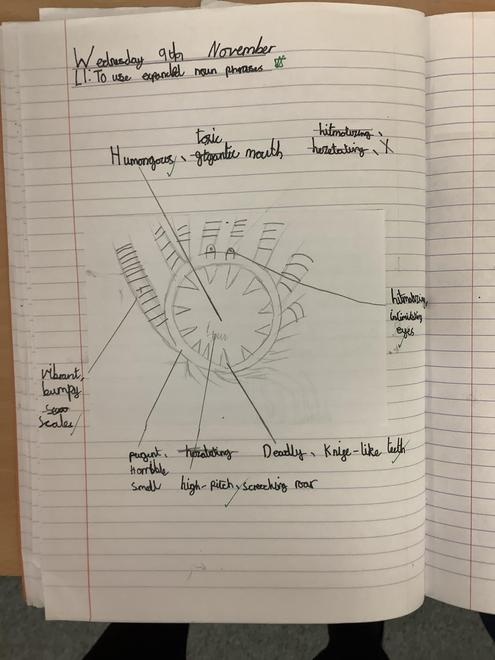 Wednesday 9th November
LI: To use expanded noun phrases
toxic
hitmotizing,
Humongous, gigantic mouth
hozetating, X
hitmotizing,
intimidating
eyes
vibrant,
bumpy
scales
pugent,
Horrible
Smell
hozetating
high-pitch, screeching roar
Deadly, Knife-like teeth